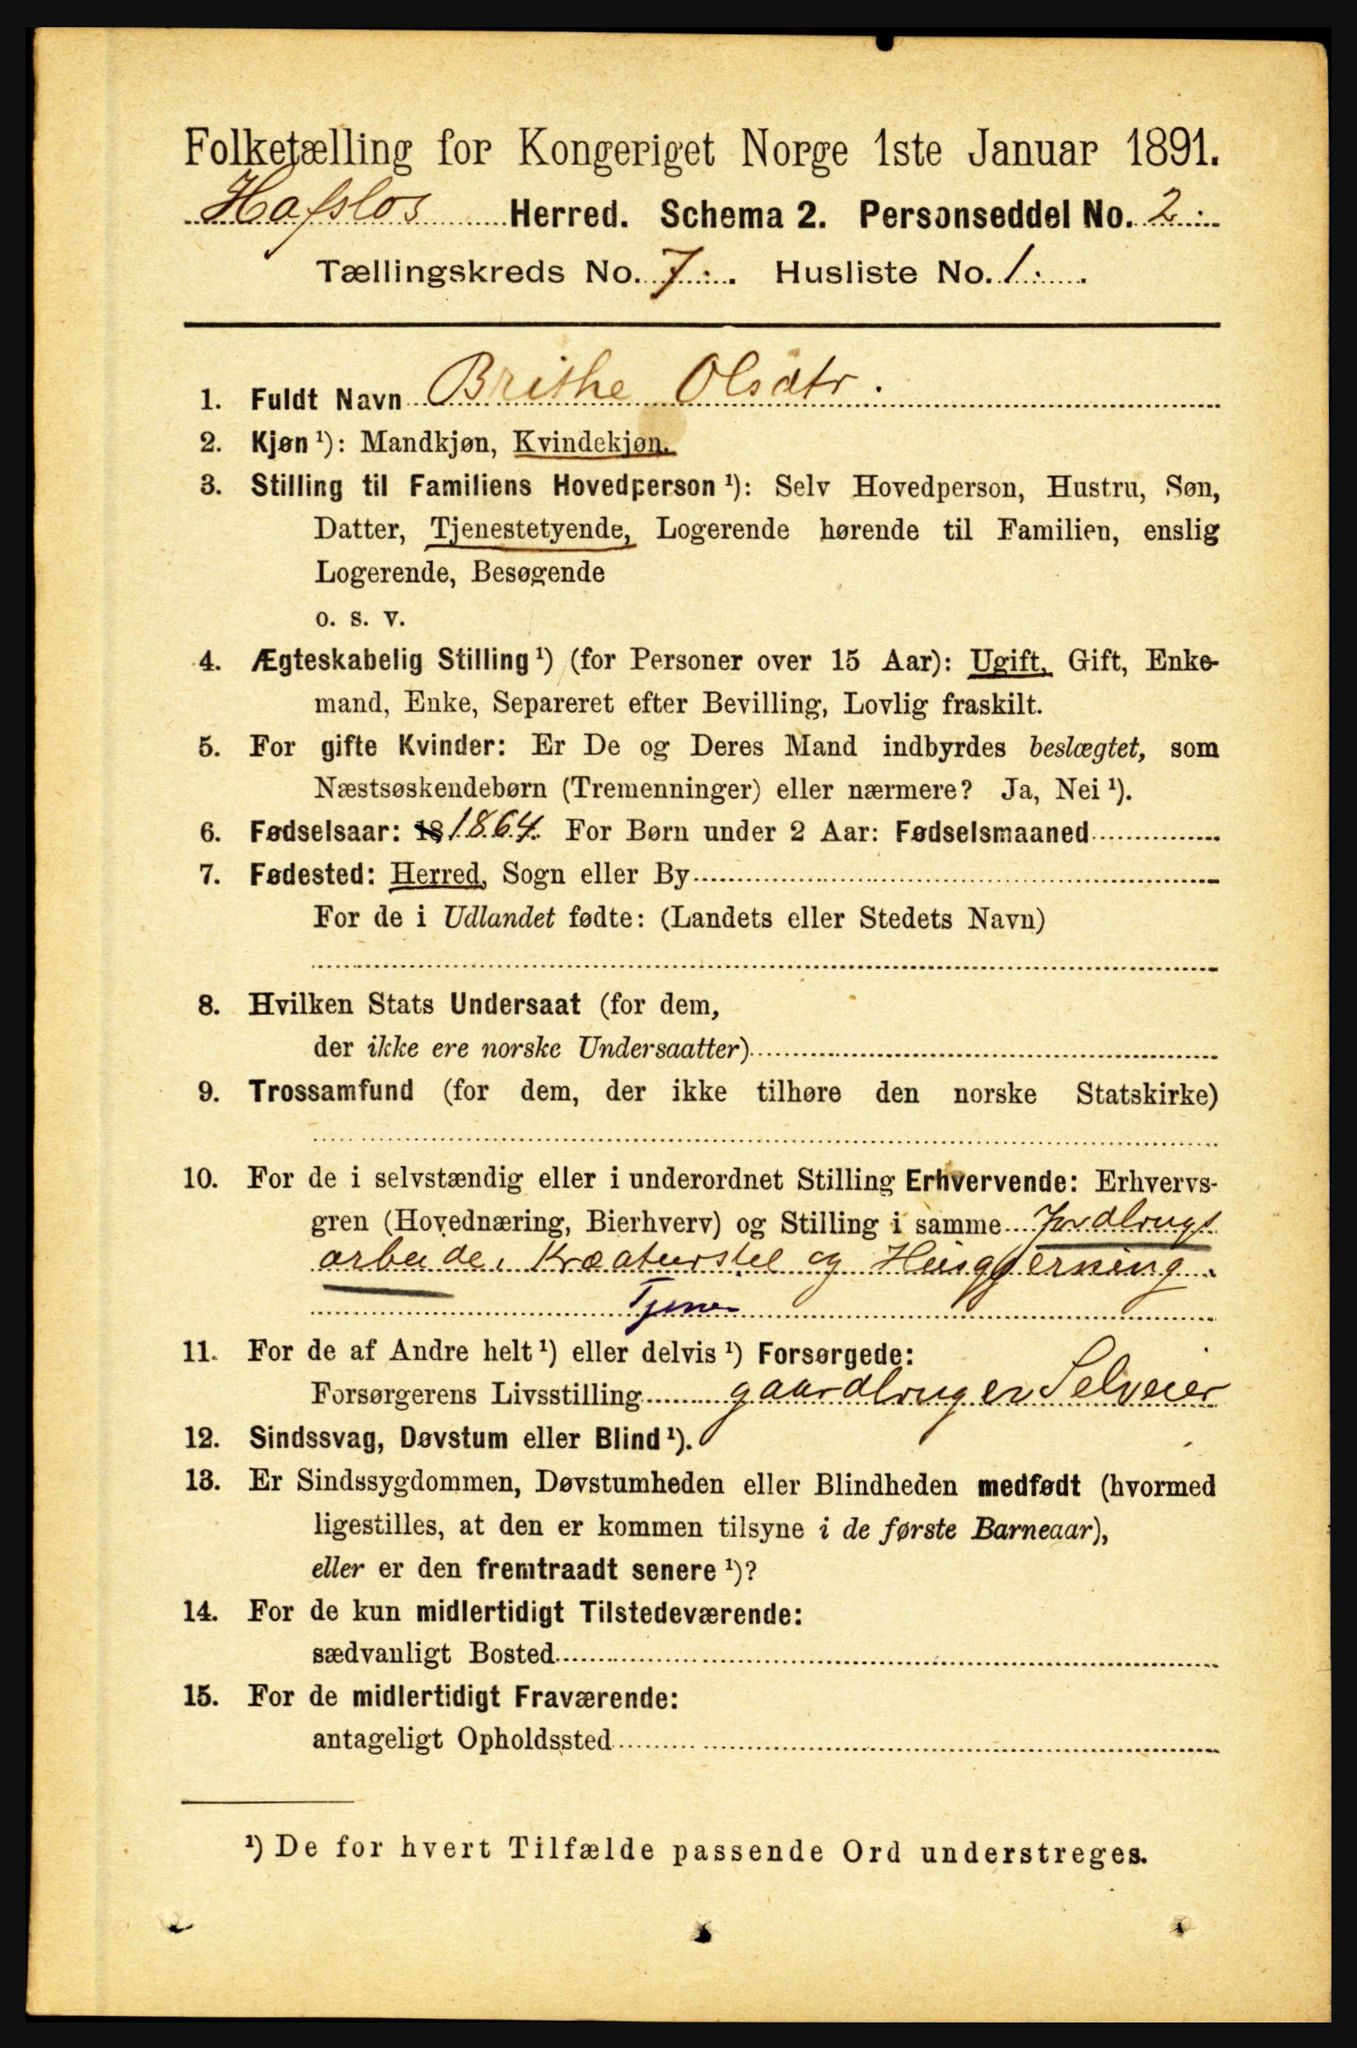 Folketælling for Kongeriget Norge 1ste Januar 1891.
Hafslos Herred. Schema 2. Personseddel No. 2.
Tællingskreds No. 7. Husliste No. 1.
1. Fuldt Navn Brithe Olsdtr.
2. Kjøn ¹): Mandkjøn, Kvindekjøn.
3. Stilling til Familiens Hovedperson ¹): Selv Hovedperson, Hustru, Søn,
Datter, Tjenestetyende, Logerende hørende til Familien, enslig
Logerende, Besøgende
o. s. v.
4. Ægteskabelig Stilling ¹) (for Personer over 15 Aar): Ugift, Gift, Enke-
mand, Enke, Separeret efter Bevilling, Lovlig fraskilt.
5. For gifte Kvinder: Er De og Deres Mand indbyrdes beslægtet, som
Næstsøskendebørn (Tremenninger) eller nærmere? Ja, Nei ¹).
6. Fødselsaar: 18 1864. For Børn under 2 Aar: Fødselsmaaned
7. Fødested: Herred, Sogn eller By
For de i Udlandet fødte: (Landets eller Stedets Navn)
8. Hvilken Stats Undersaat (for dem,
der ikke ere norske Undersaatter)
9. Trossamfund (for dem, der ikke tilhøre den norske Statskirke)
10. For de i selvstændig eller i underordnet Stilling Erhvervende: Erhvervs-
gren (Hovednæring, Bierhverv) og Stilling i samme Jordbrugs
arbeide, Kræaturstel og Husgjerning.
Tjener
11. For de af Andre helt ¹) eller delvis ¹) Forsørgede:
Forsørgerens Livsstilling gaardbruger Selveier
12. Sindssvag, Døvstum eller Blind ¹).
13. Er Sindssygdommen, Døvstumheden eller Blindheden medfødt (hvormed
ligestilles, at den er kommen tilsyne i de første Barneaar),
eller er den fremtraadt senere ¹)?
14. For de kun midlertidigt Tilstedeværende:
sædvanligt Bosted
15. For de midlertidigt Fraværende:
antageligt Opholdssted
¹) De for hvert Tilfælde passende Ord understreges.